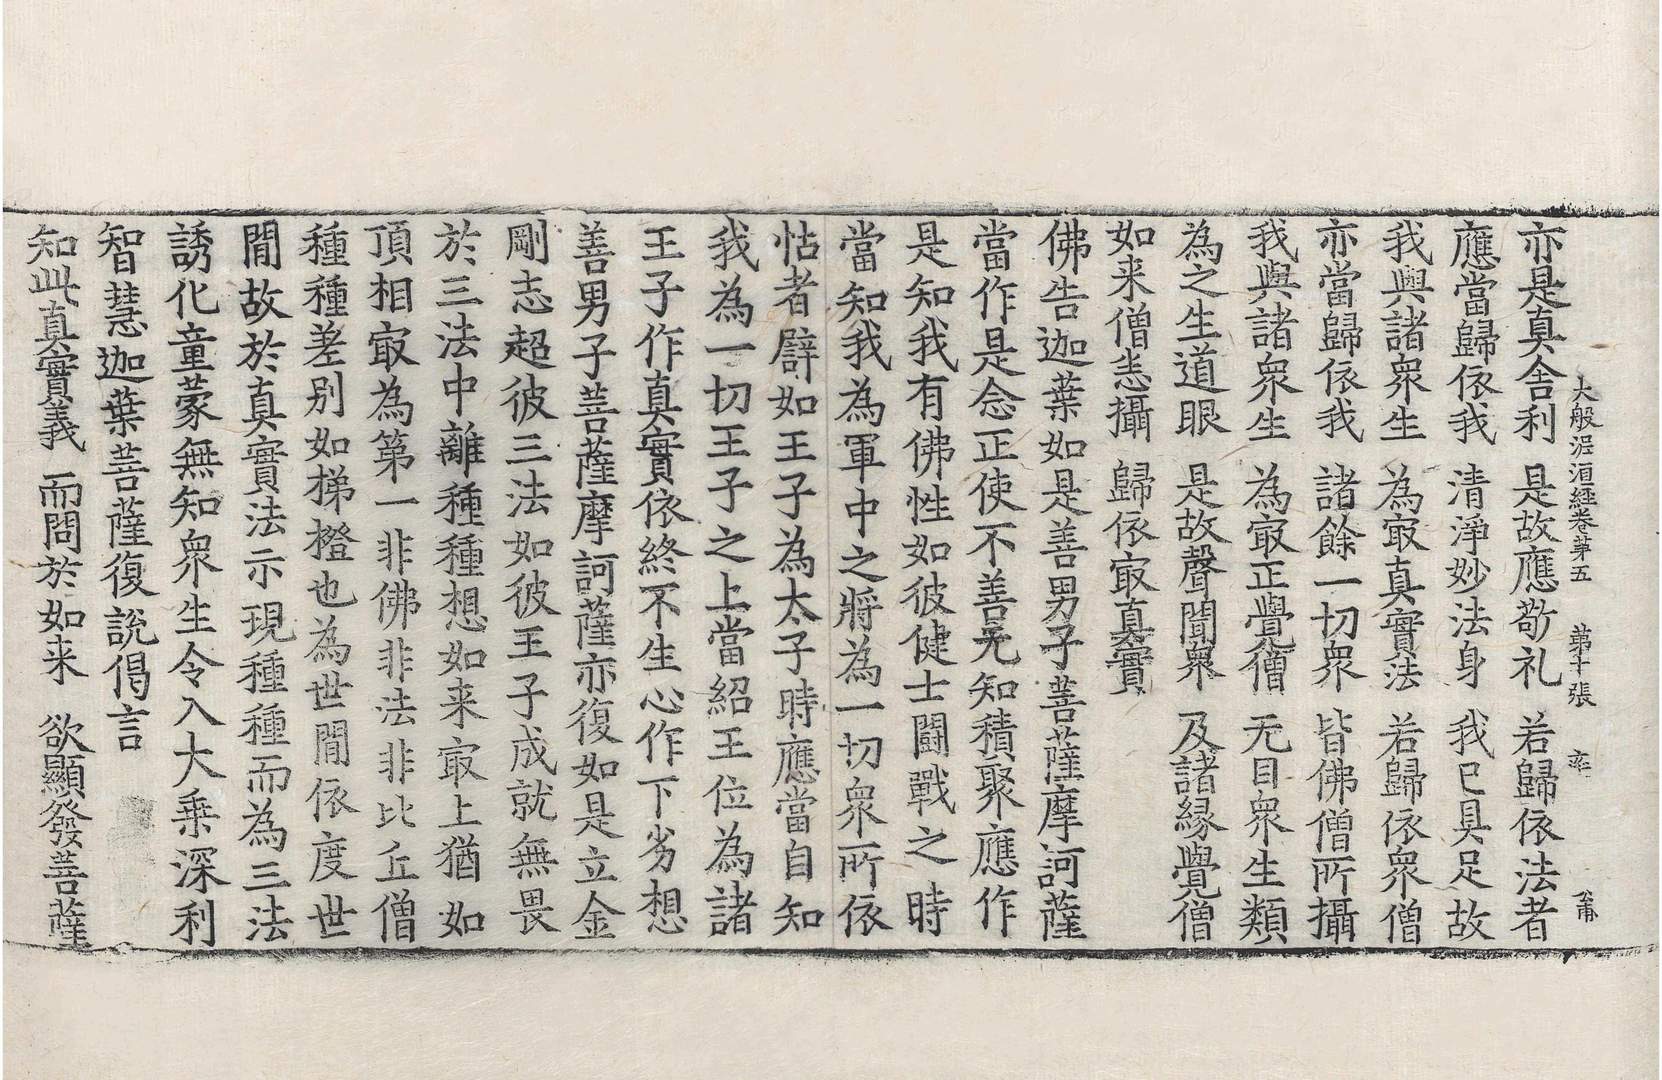 大般泥洹經卷第五 第十張
亦是真舍利 是故應敬礼 若歸依法者
應當歸依我 清淨妙法身 我已具足故
我與諸衆生 為㝡真實法 若歸依衆僧
亦當歸依我 諸餘一切衆 皆佛僧所攝
我與諸衆生 為㝡正覺僧 无目衆生類
為之生道眼 是故聲聞衆 及諸緣覺僧
如来僧悉攝 歸依㝡真實
佛告迦葉如是善男子菩薩摩訶薩
當作是念正使不善无知積聚應作
是知我有佛性如彼健士鬪戰之時
當知我為軍中之將為一切衆所依
怙者譬如王子為太子時應當自知
我為一切王子之上當紹王位為諸
王子作真實依終不生心作下劣想
善男子菩薩摩訶薩亦復如是立金
剛志超彼三法如彼王子成就無畏
於三法中離種種想如来㝡上猶如
頂相㝡為第一非佛非法非比丘僧
種種差別如梯橙也為世間依度世
間故於真實法示現種種而為三法
誘化童蒙無知衆生令入大乘深利
智慧迦葉菩薩復說偈言
知此真實義 而問於如来 欲顯發菩薩